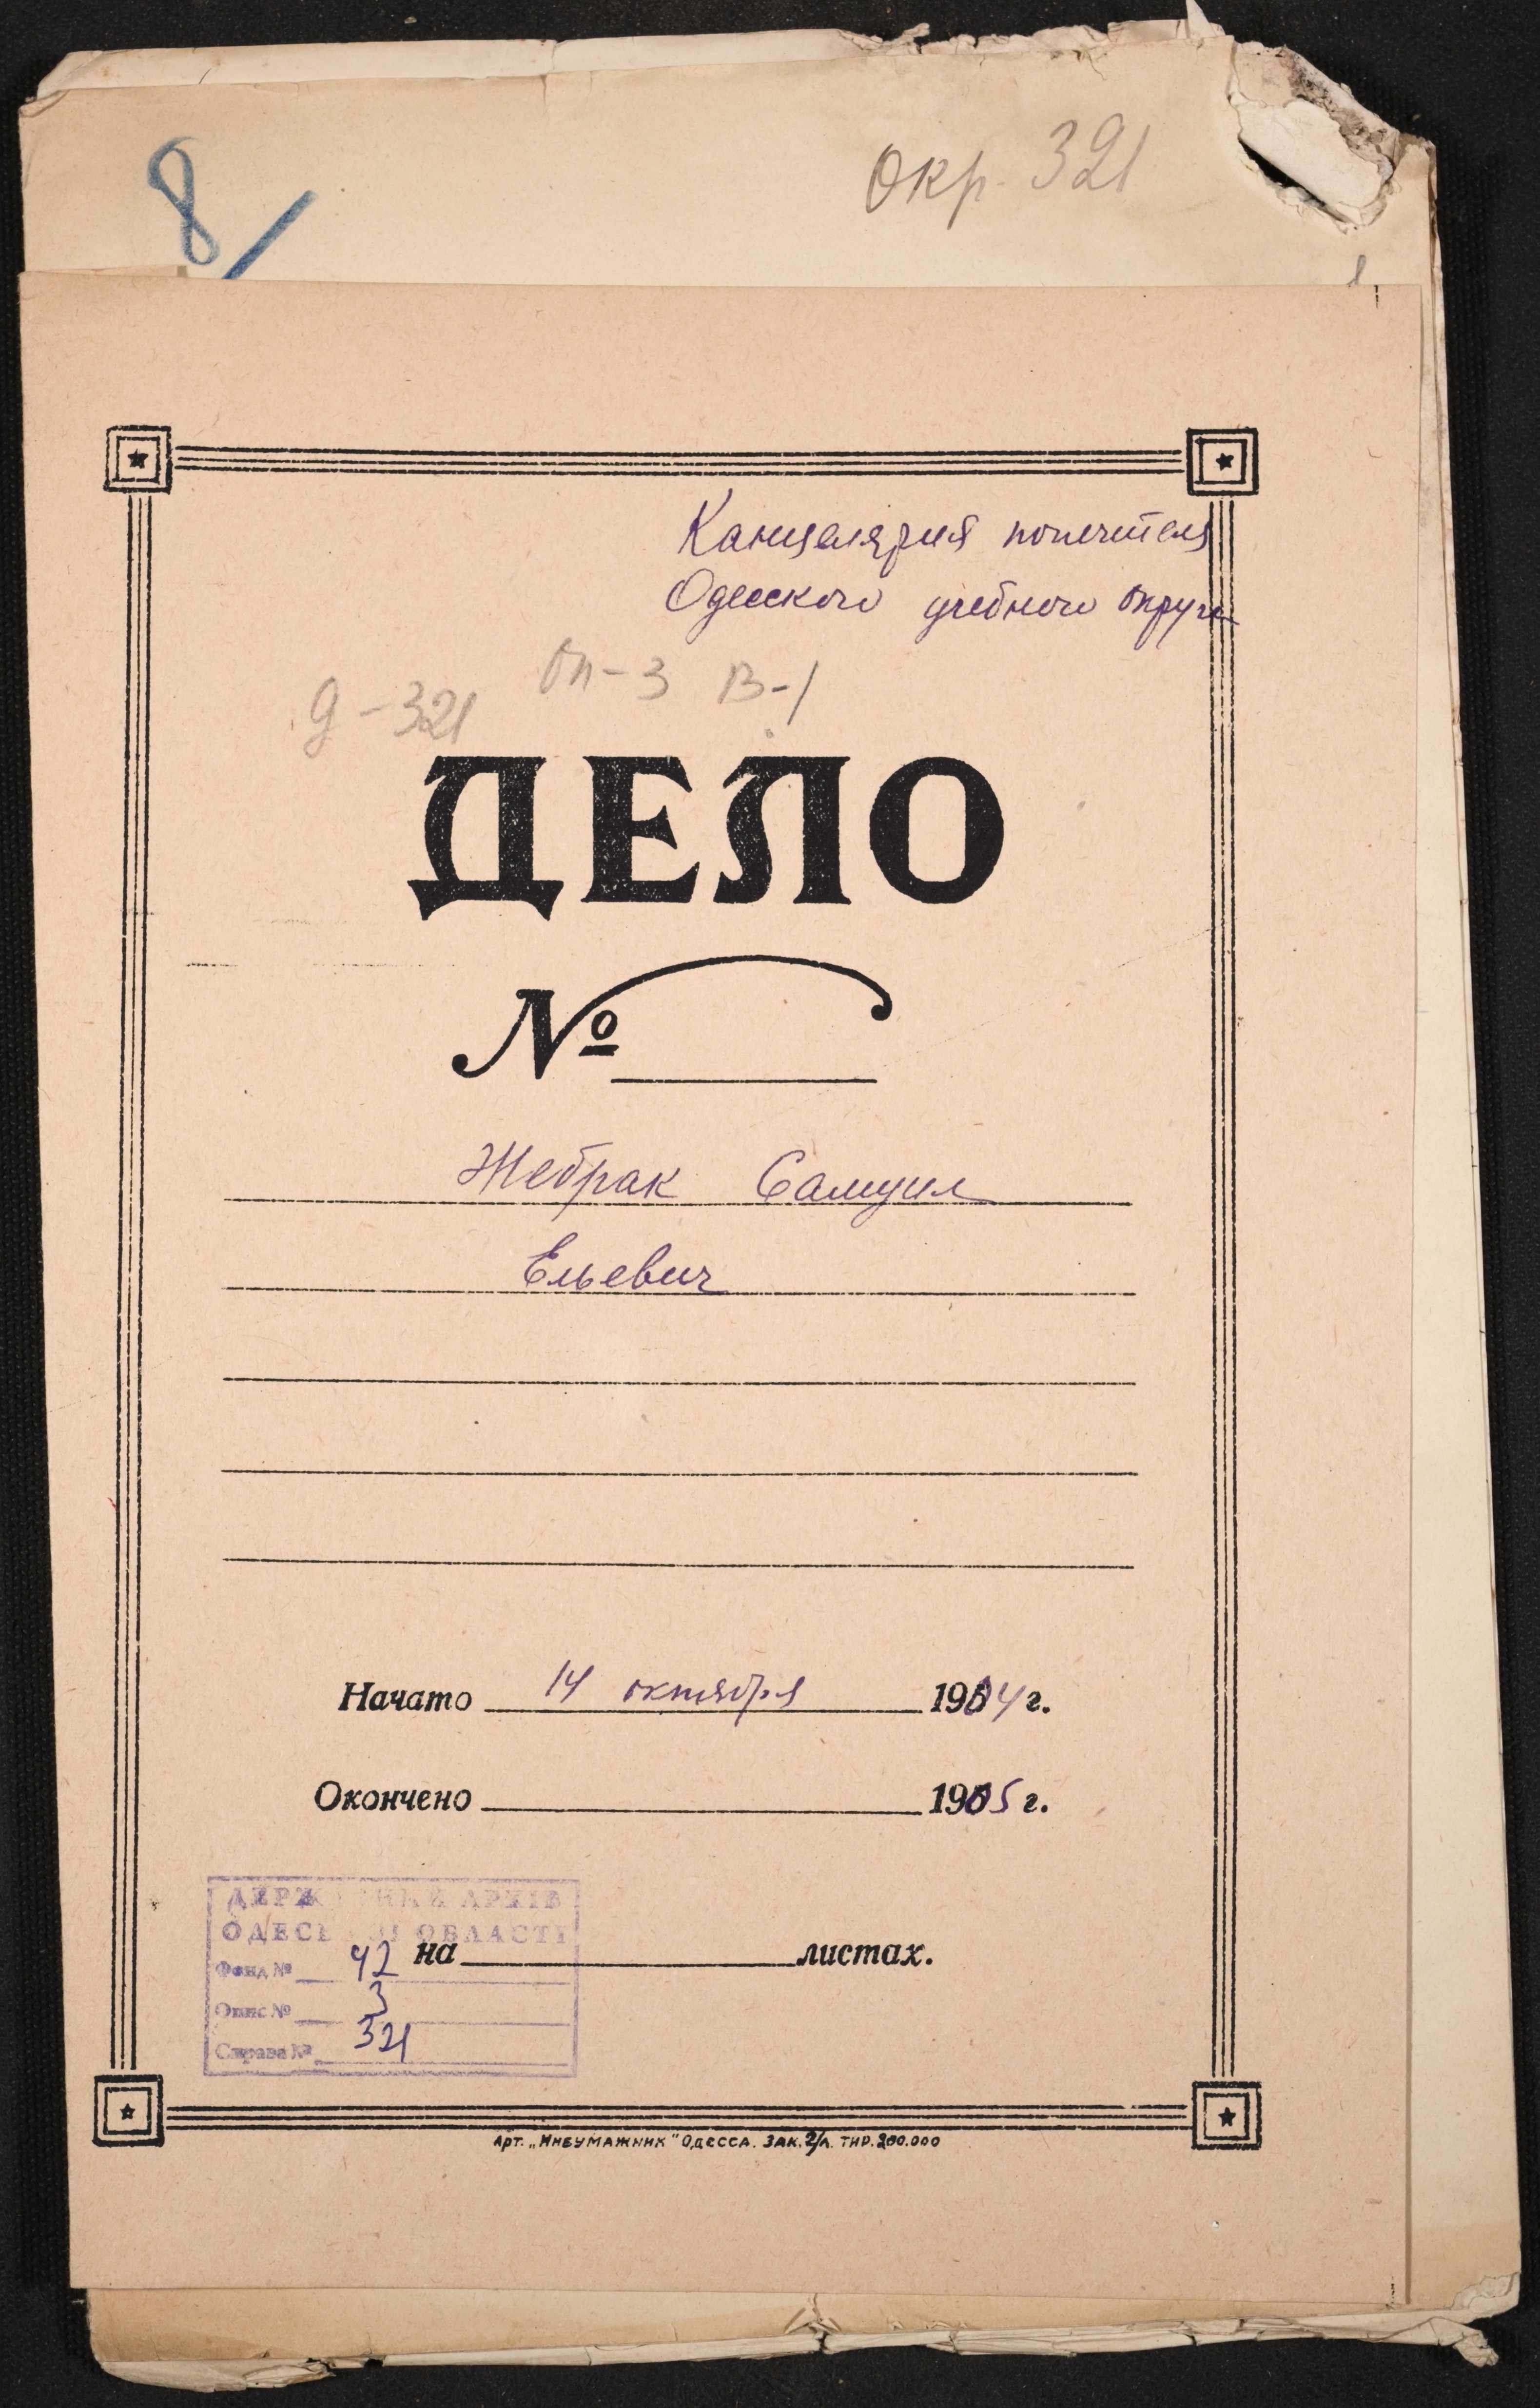 8/
окр. 321
Канцелярия попечителя
Одесского учебного округа
оп-3 В-1
д-321
ДЕЛО
№
Жебрак Самуил
Ельевич
Начато 14 октября 1904 г.
Окончено 1905 г.
ДЕРЖАВНИЙ АРХІВ
ОДЕСЬКОЇ ОБЛАСТІ
на листах.
Фонд № 42
Опис № 3
Справа № 321
АРТ. „ИНБУМАЖНИК" ОДЕССА. ЗАК. 2/л. ТИР. 200.000